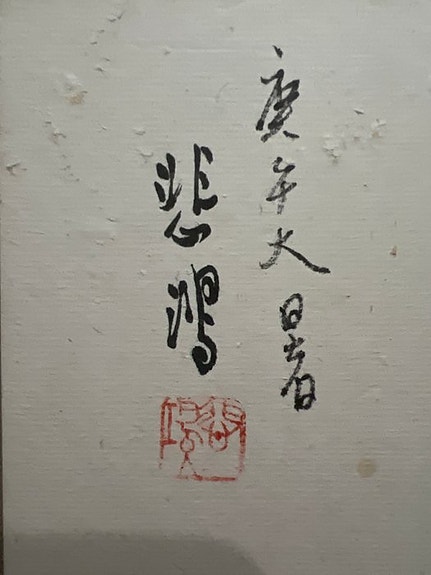 庚午大暑
悲鴻